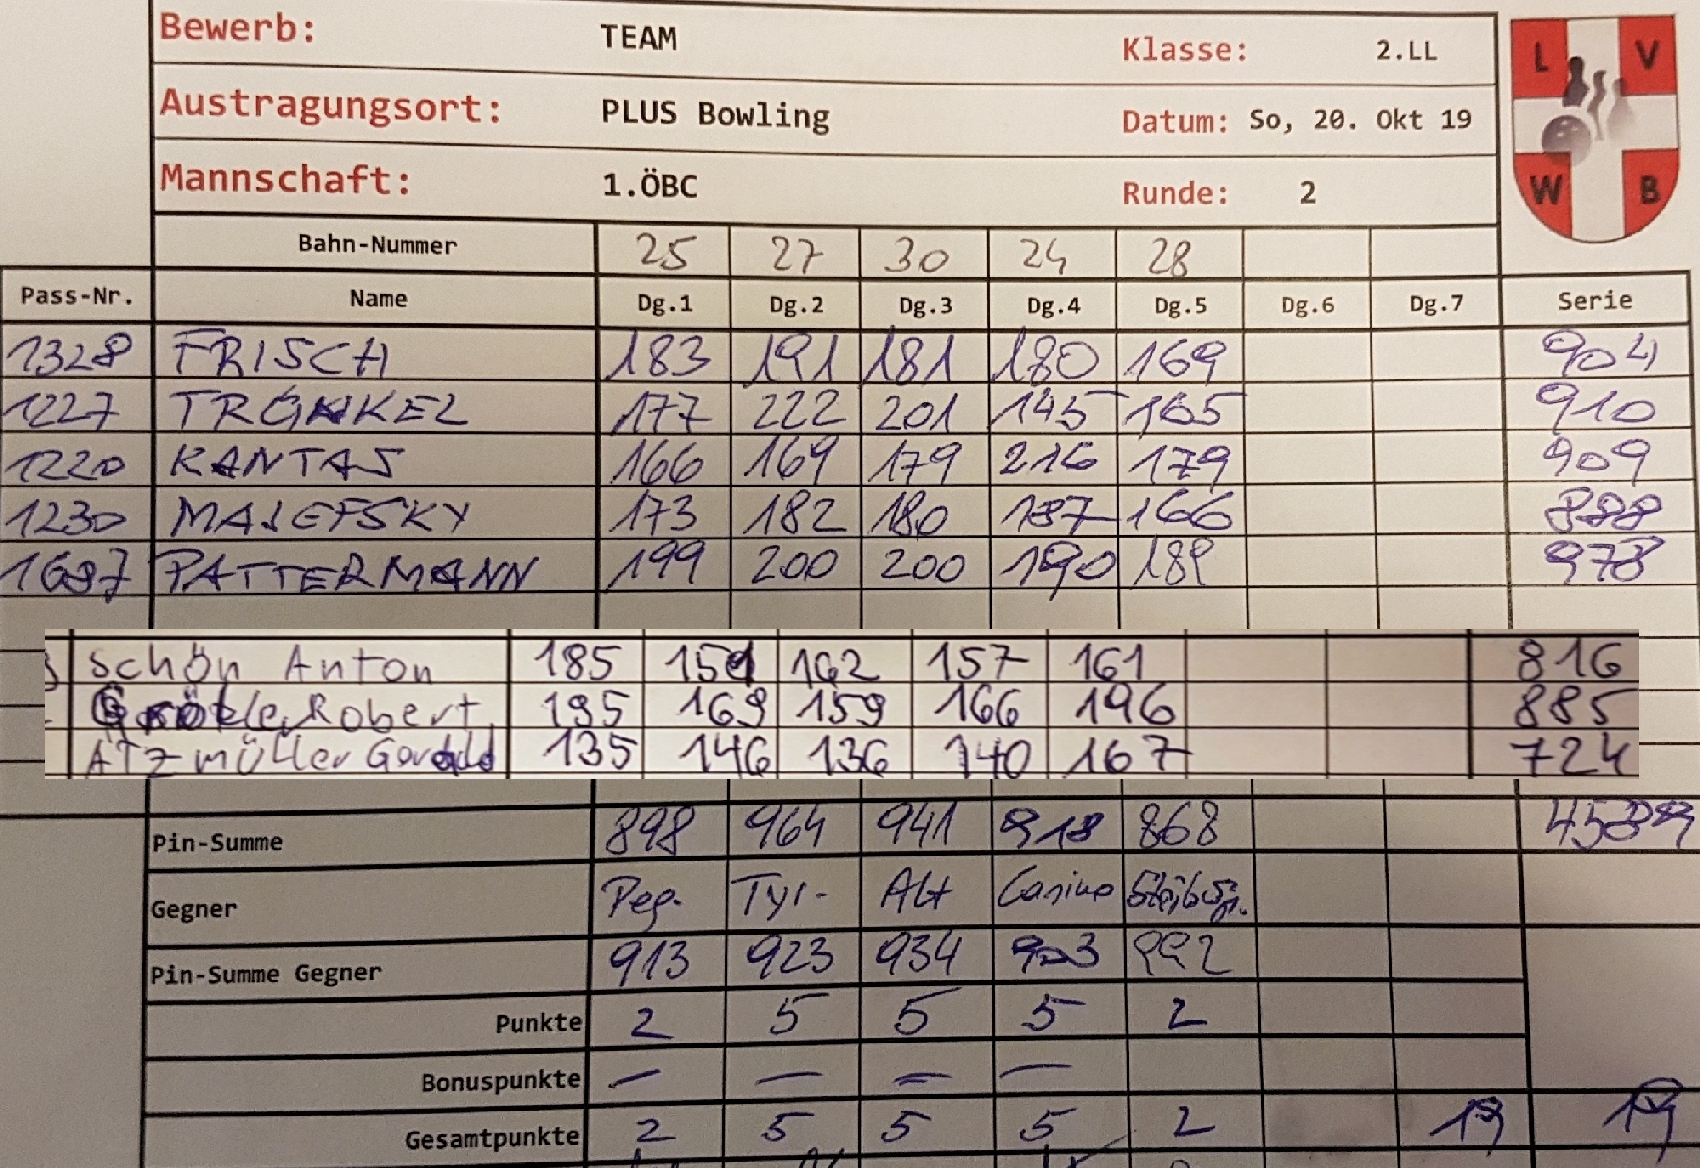 Bewerb: TEAM Klasse: 2.LL
Austragungsort: PLUS Bowling Datum: So, 20. Okt 19
Mannschaft: 1.ÖBC Runde: 2
L V W B
Bahn-Nummer 25 27 30 24 28
Pass-Nr. Name Dg.1 Dg.2 Dg.3 Dg.4 Dg.5 Dg.6 Dg.7 Serie
1328 FRISCH 183 191 181 180 169 904
1227 177 222 201 145 165 910
1220 KANTAS 166 169 179 216 179 909
1230 MAJEFSKY 173 182 180 187 166 888
PATTERMANN 199 200 200 190 189 978
Schön Anton 185 151 162 157 161 816
Robert 195 169 159 166 196 885
Atzmüller 135 146 136 140 167 724
Pin-Summe 898 964 941 918 868 4589
Gegner Peg. Tyr- Alt Casino
Pin-Summe Gegner 913 923 934 903 992
Punkte 2 5 5 5 2
Bonuspunkte — — — —
Gesamtpunkte 2 5 5 5 2 19 19